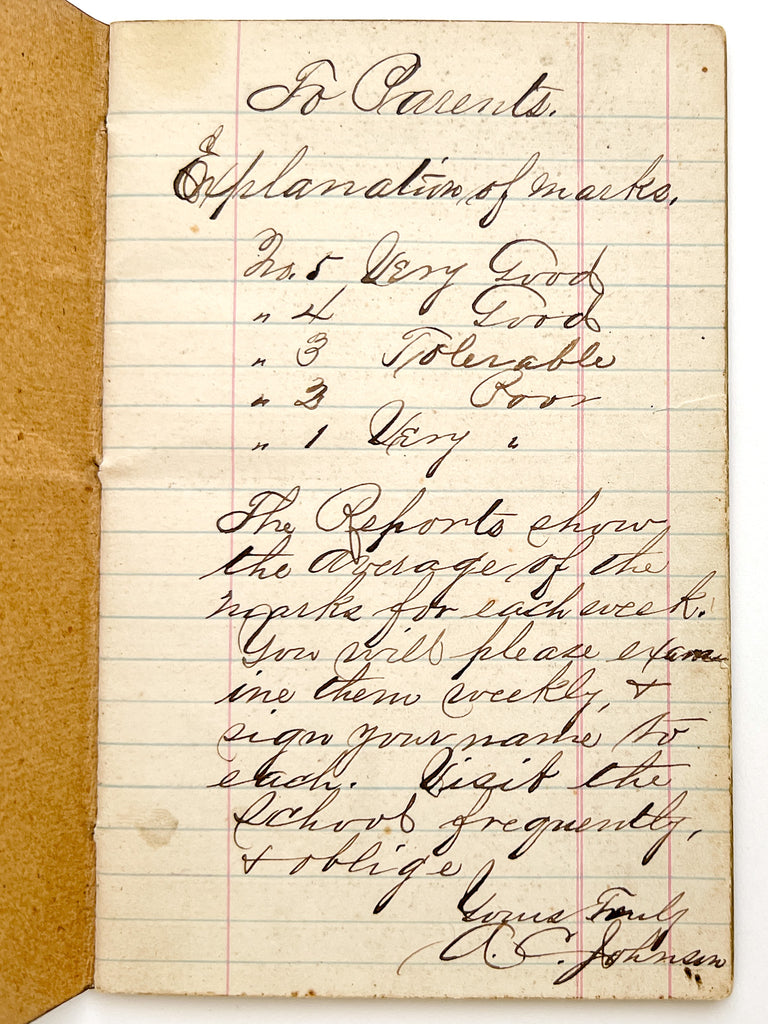 To Parents.
Explanation of marks.
No. 5 Very Good
" 4 Good
" 3 Tolerable
" 2 Poor
" 1 Very "
The Reports show
the average of the
marks for each week.
You will please exam
ine them weekly, &
sign your name to
each. Visit the
School frequently,
& oblige
Yours Truly
A. C. Johnson